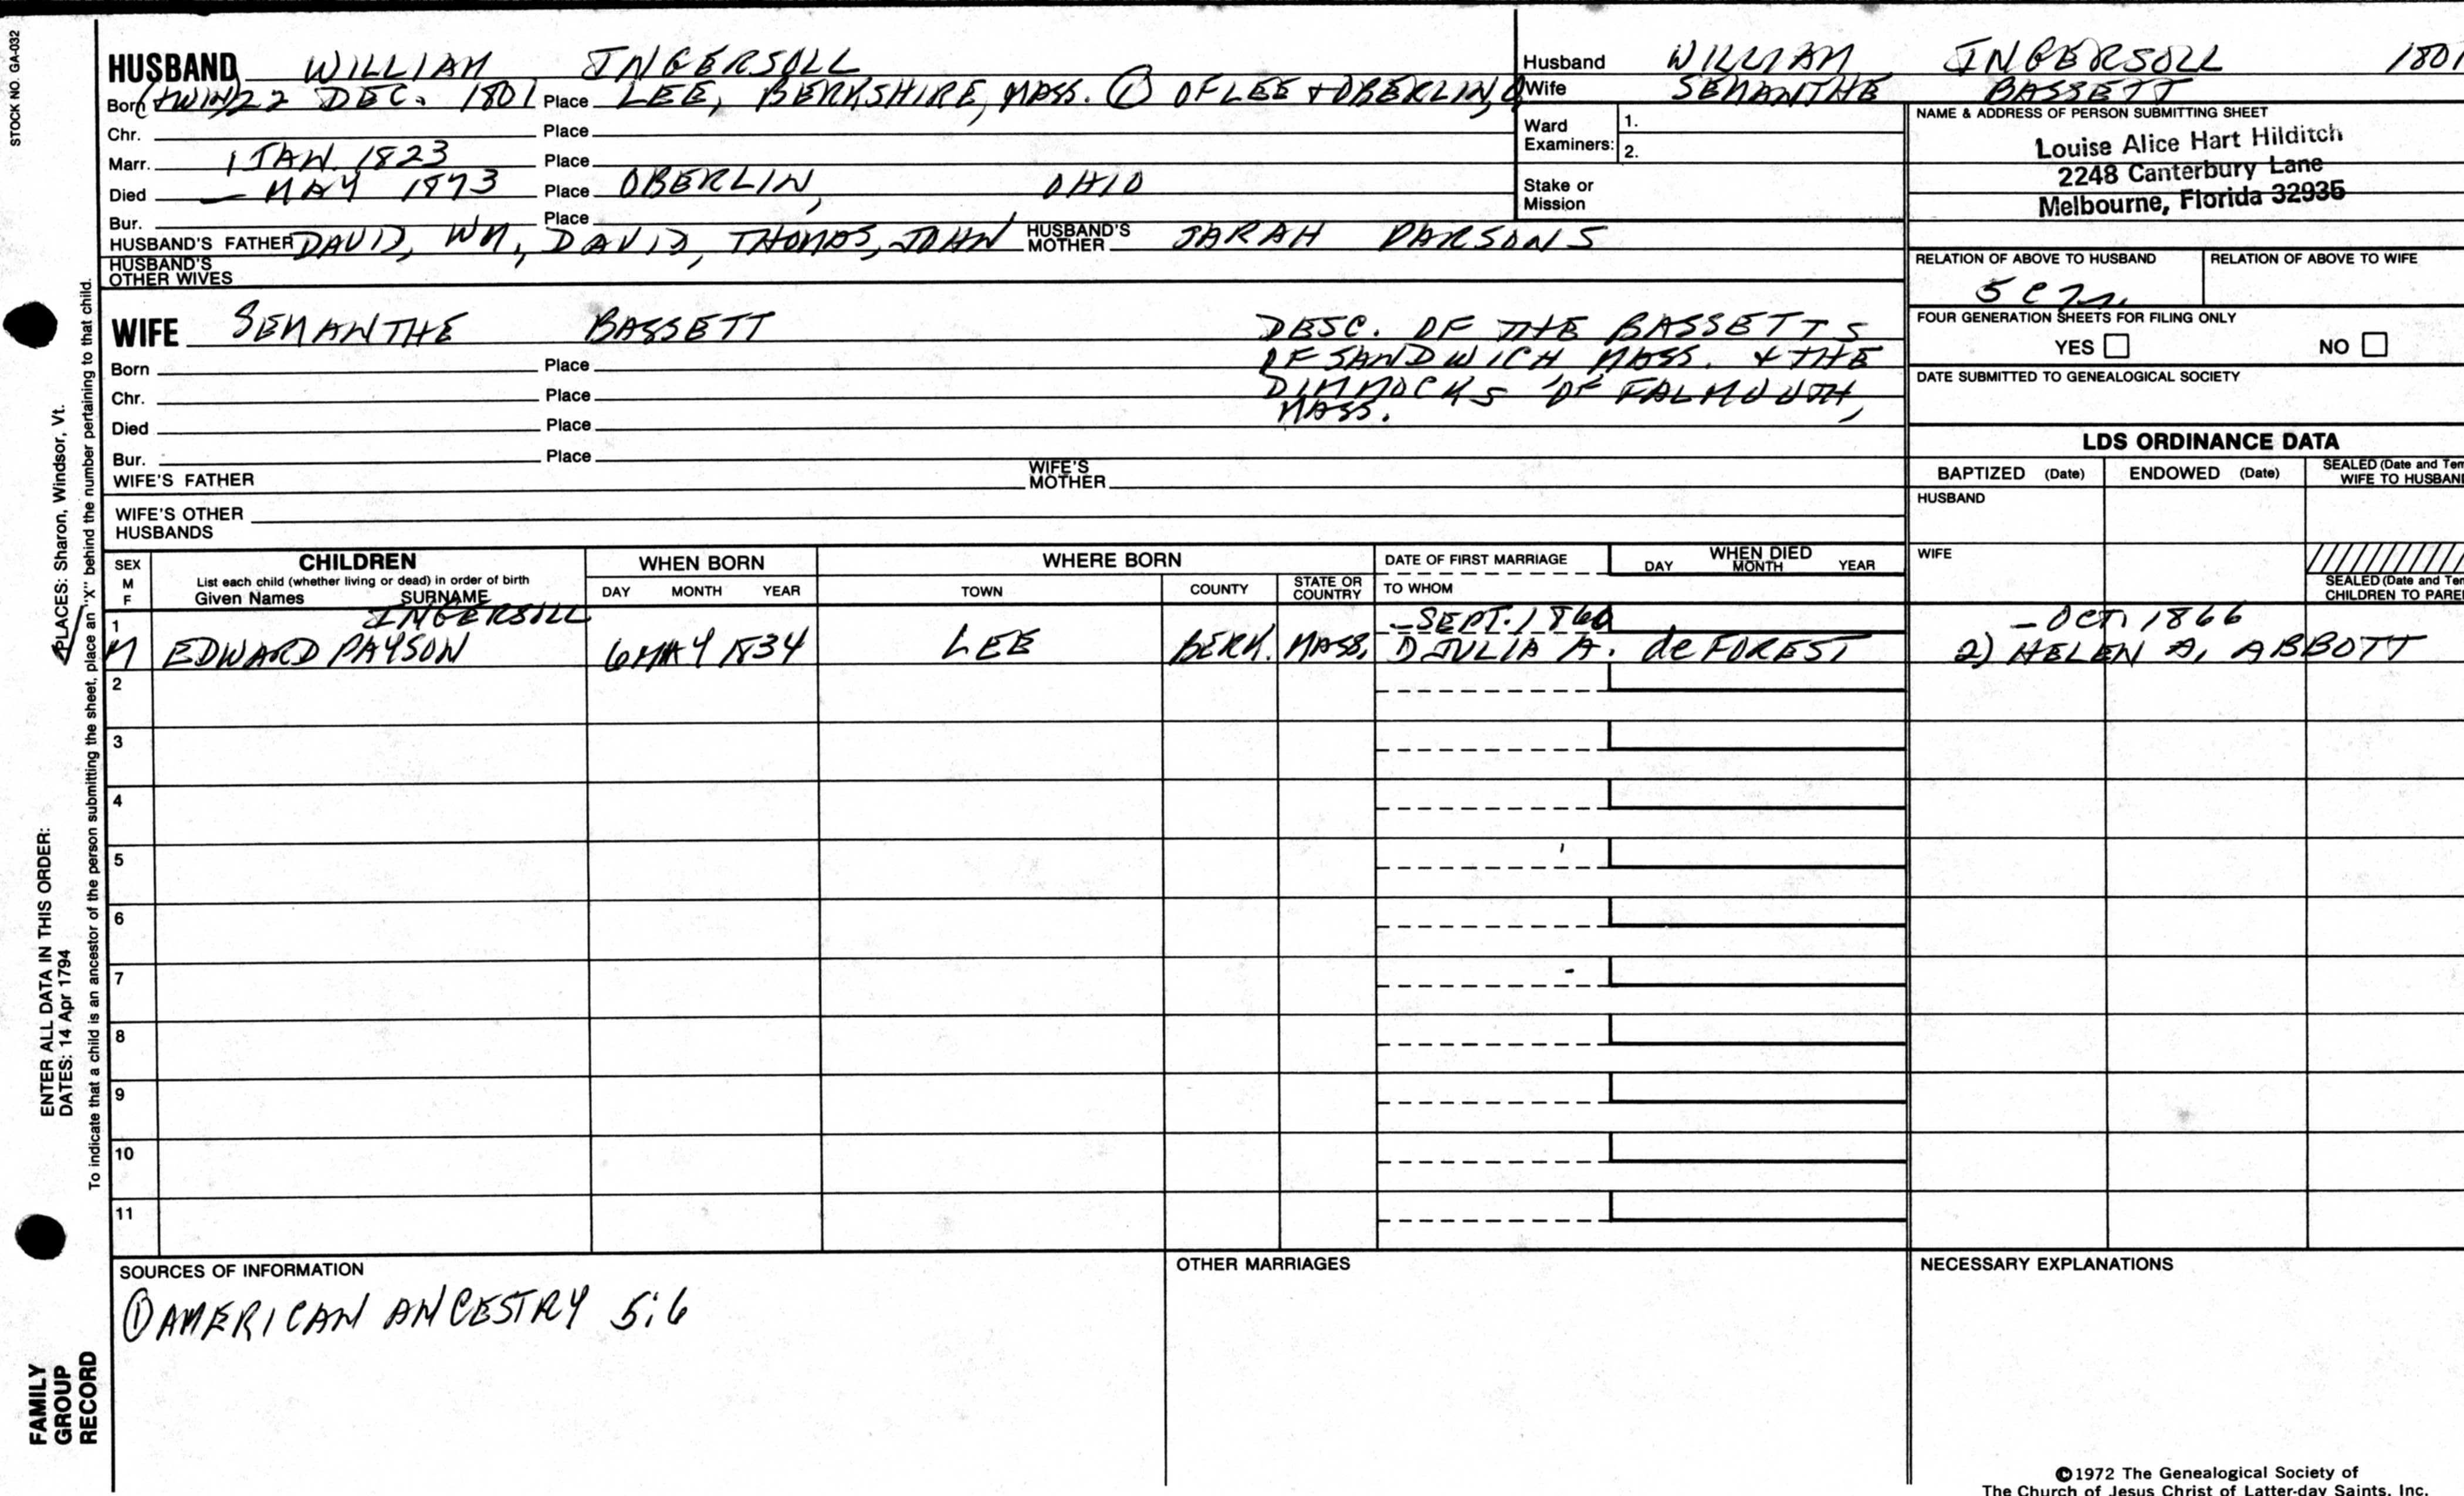 STOCK NO. GA-032
HUSBAND WILLIAM INGERSOLL
Born (TWIN) 22 DEC. 1801 Place LEE, BERKSHIRE, MASS. ① OF LEE & OBERLIN, O
Chr. Place
Marr. 1 JAN. 1823 Place
Died — MAY 1873 Place OBERLIN, OHIO
Bur. Place
HUSBAND'S FATHER DAVID, WM, DAVID, THOMAS, JOHN HUSBAND'S MOTHER SARAH PARSONS
HUSBAND'S OTHER WIVES
Husband WILLIAM INGERSOLL 1801
Wife SEMANTHE BASSETT
Ward Examiners: 1.
2.
Stake or Mission
NAME & ADDRESS OF PERSON SUBMITTING SHEET
Louise Alice Hart Hilditch
2248 Canterbury Lane
Melbourne, Florida 32935
RELATION OF ABOVE TO HUSBAND RELATION OF ABOVE TO WIFE
FOUR GENERATION SHEETS FOR FILING ONLY
YES NO
DATE SUBMITTED TO GENEALOGICAL SOCIETY
WIFE SEMANTHE BASSETT DESC. OF THE BASSETTS
OF SANDWICH MASS. & THE
DIMMOCKS OF FALMOUTH,
MASS.
Born Place
Chr. Place
Died Place
Bur. Place
WIFE'S FATHER WIFE'S MOTHER
WIFE'S OTHER HUSBANDS
LDS ORDINANCE DATA
BAPTIZED (Date) ENDOWED (Date) SEALED (Date and Tem
WIFE TO HUSBAN
HUSBAND
WIFE
SEALED (Date and Tem
CHILDREN TO PARE
SEX M F CHILDREN WHEN BORN WHERE BORN DATE OF FIRST MARRIAGE WHEN DIED
List each child (whether living or dead) in order of birth
Given Names SURNAME DAY MONTH YEAR TOWN COUNTY STATE OR COUNTRY TO WHOM DAY MONTH YEAR
1 INGERSOLL — SEPT. 1860 — OCT. 1866
M EDWARD PAYSON 6 MAY 1834 LEE BERK. MASS. 1) JULIA A. de FOREST 2) HELEN A. ABBOTT
2
3
4
5
6
7
8
9
10
11
SOURCES OF INFORMATION
① AMERICAN ANCESTRY 5:6
OTHER MARRIAGES
NECESSARY EXPLANATIONS
©1972 The Genealogical Society of
The Church of Jesus Christ of Latter-day Saints, Inc.
PLACES: Sharon, Windsor, Vt.
ENTER ALL DATA IN THIS ORDER:
DATES: 14 Apr 1794
To indicate that a child is an ancestor of the person submitting the sheet, place an "X" behind the number pertaining to that child.
FAMILY
GROUP
RECORD